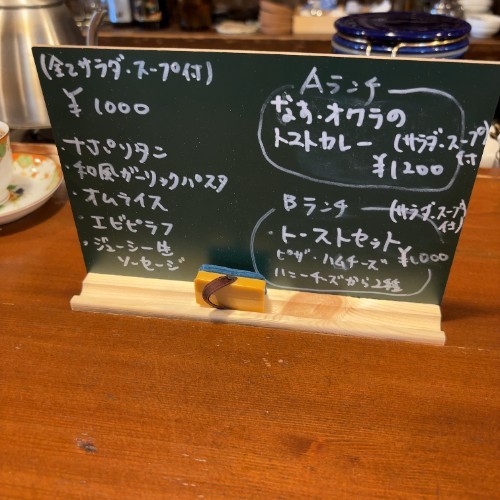 (全てサラダ・スープ付)
¥1000
・ナポリタン
・和風ガーリックパスタ
・オムライス
・エビピラフ
・ジューシー生
ソーセージ
Aランチ
なす・オクラの
トマトカレー (サラダ・スープ付
¥1200
Bランチ (サラダ・スープ付)
・トーストセット
ピザ・ハムチーズ ¥1,000
ハニーチーズから2種